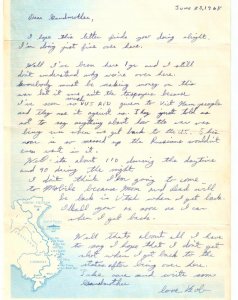 June 23, 1968
Dear Grandmother,
I hope this letter finds you doing alright.
I'm doing just fine over here.
Well I've been here 1 yr and I still
don't understand why we're over here.
Somebody must be making money on this
war but it sure isn't the taxpayers because
I've seen so much US AID given to Viet Nam people
and they use it against us. They told us
not to say anything about how the war is
being run when we get back to the US. This
war is so messed up the Russians wouldn't
even want in it.
Well its about 110 during the daytime
and 90 during the night.
I don't think I'm going to come
to Mobile because Mom and Dad will
be back in Utah when I get back.
I'll call you as soon as I can
when I get back.
Well thats about all I have
to say I hope that I don't get
shot when I get back to the
states after being over here.
Take care and write soon
Grandmother
love